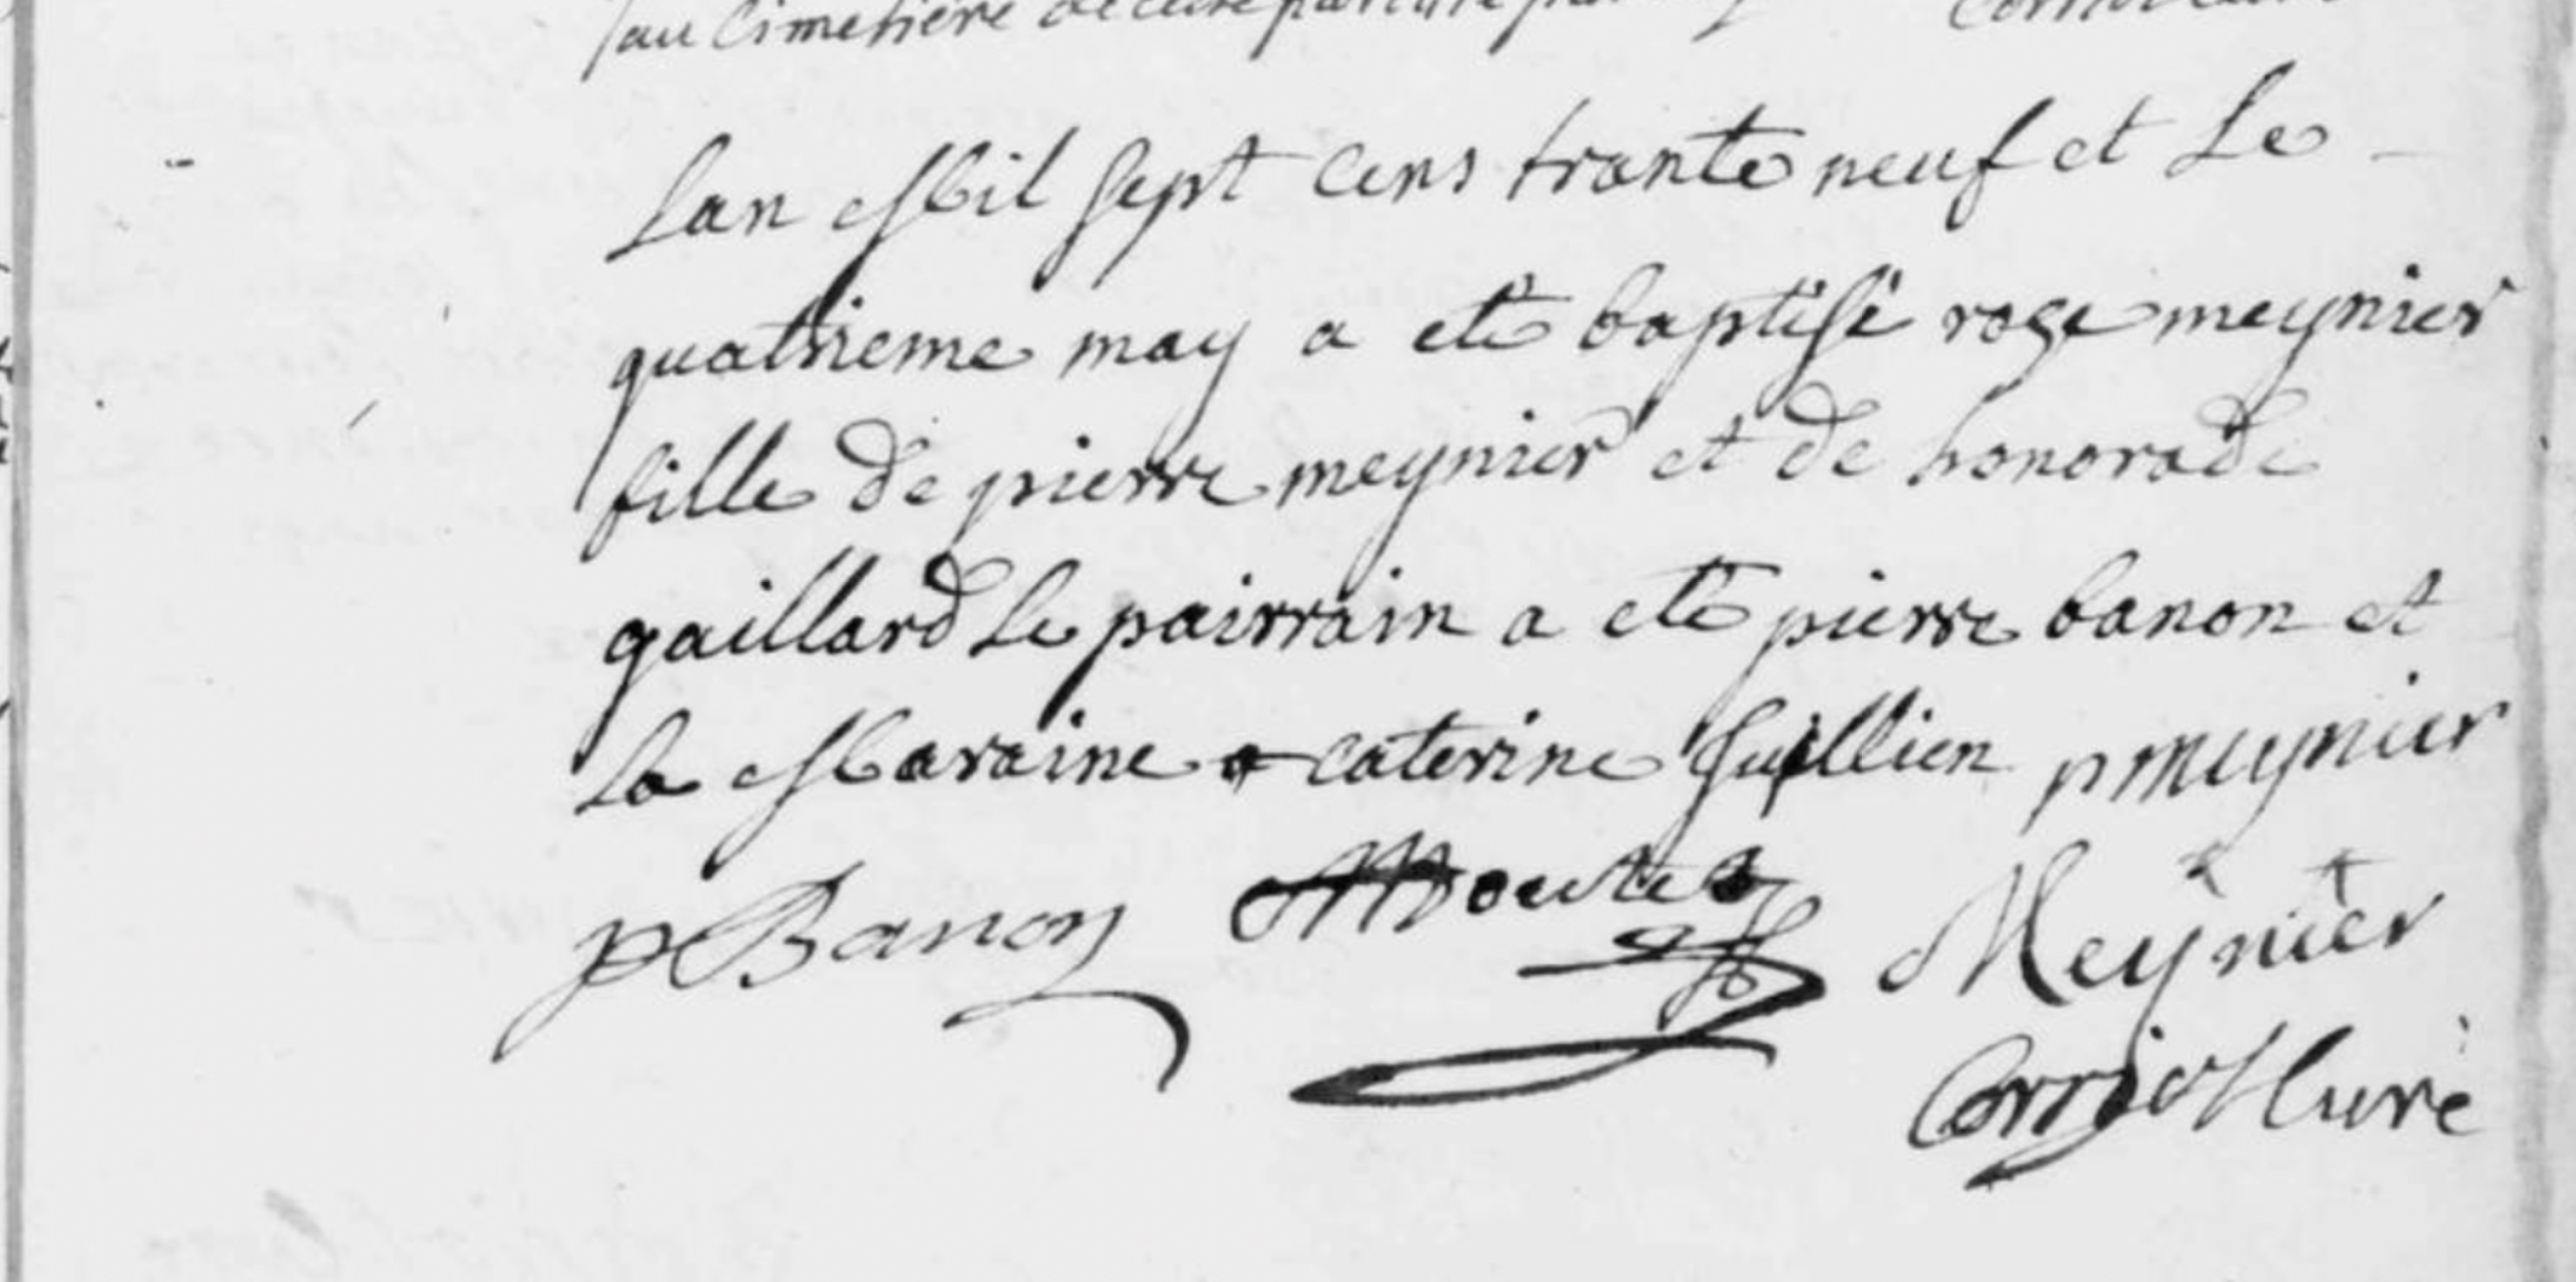 au Cimetière de cette paroisse
Lan Mil sept cens trante neuf et Le
quatrieme may a eté baptisé rose meynier
fille de pierre meynier et de honorade
gaillard Le pairrain a eté pierre banon et
La Maraine caterine Juillien p meynier
p Banon Moutet Meynier
Corriol Curé